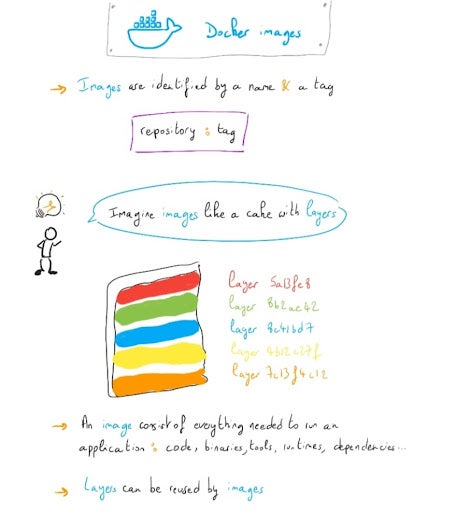 Docker images
→ Images are identified by a name & a tag
repository : tag
Imagine images like a cake with layers
layer 5a13fe8
layer 8b2ac42
layer 8c41bd7
layer
layer 7c13f4c12
→ An image consist of everything needed to run an
application : code, binaries, tools, runtimes, dependencies...
→ Layers can be reused by images